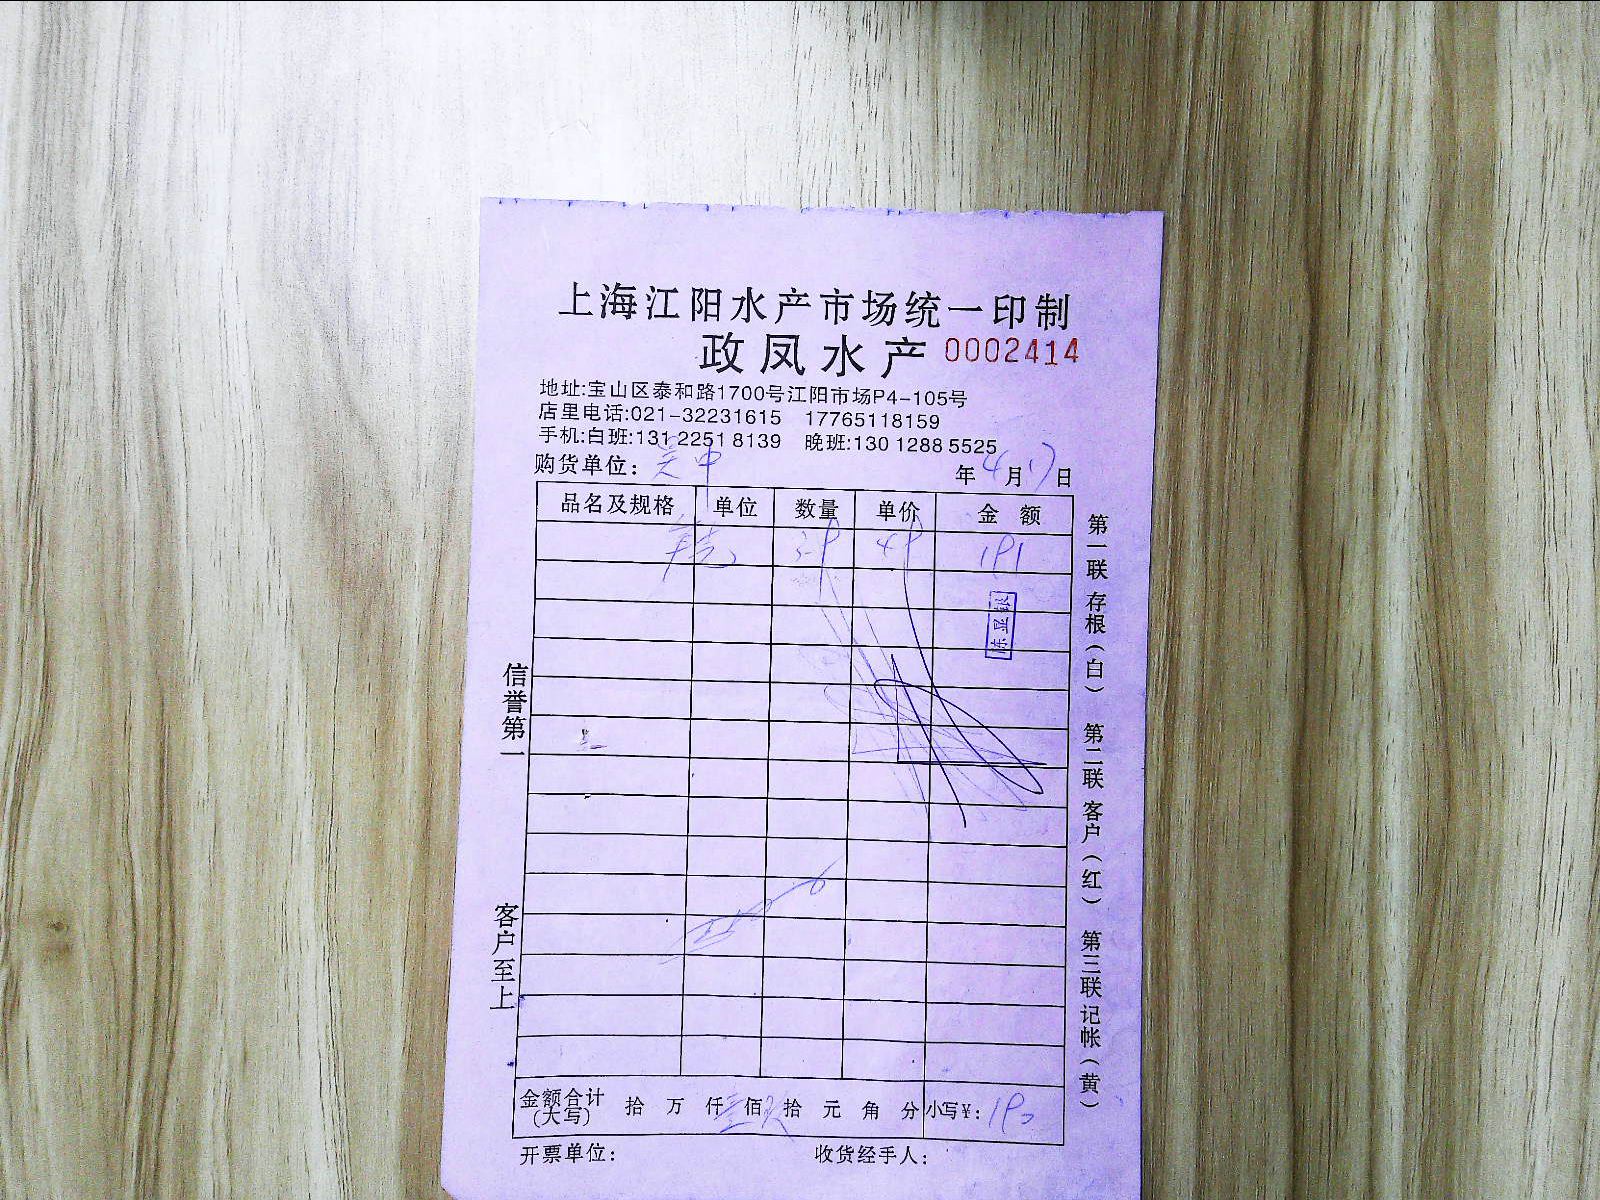 上海江阳水产市场统一印制
政凤水产 0002414
地址:宝山区泰和路1700号江阳市场P4-105号
店里电话:021-32231615 17765118159
手机:白班:131 2251 8139 晚班:130 1288 5525
购货单位:
年4月17日
品名及规格 单位 数量 单价 金额
陈显银
信誉第一
客户至上
第一联 存根(白) 第二联 客户(红) 第三联 记帐(黄)
金额合计(大写) 拾 万 仟 佰 拾 元 角 分 小写¥:
开票单位: 收货经手人: